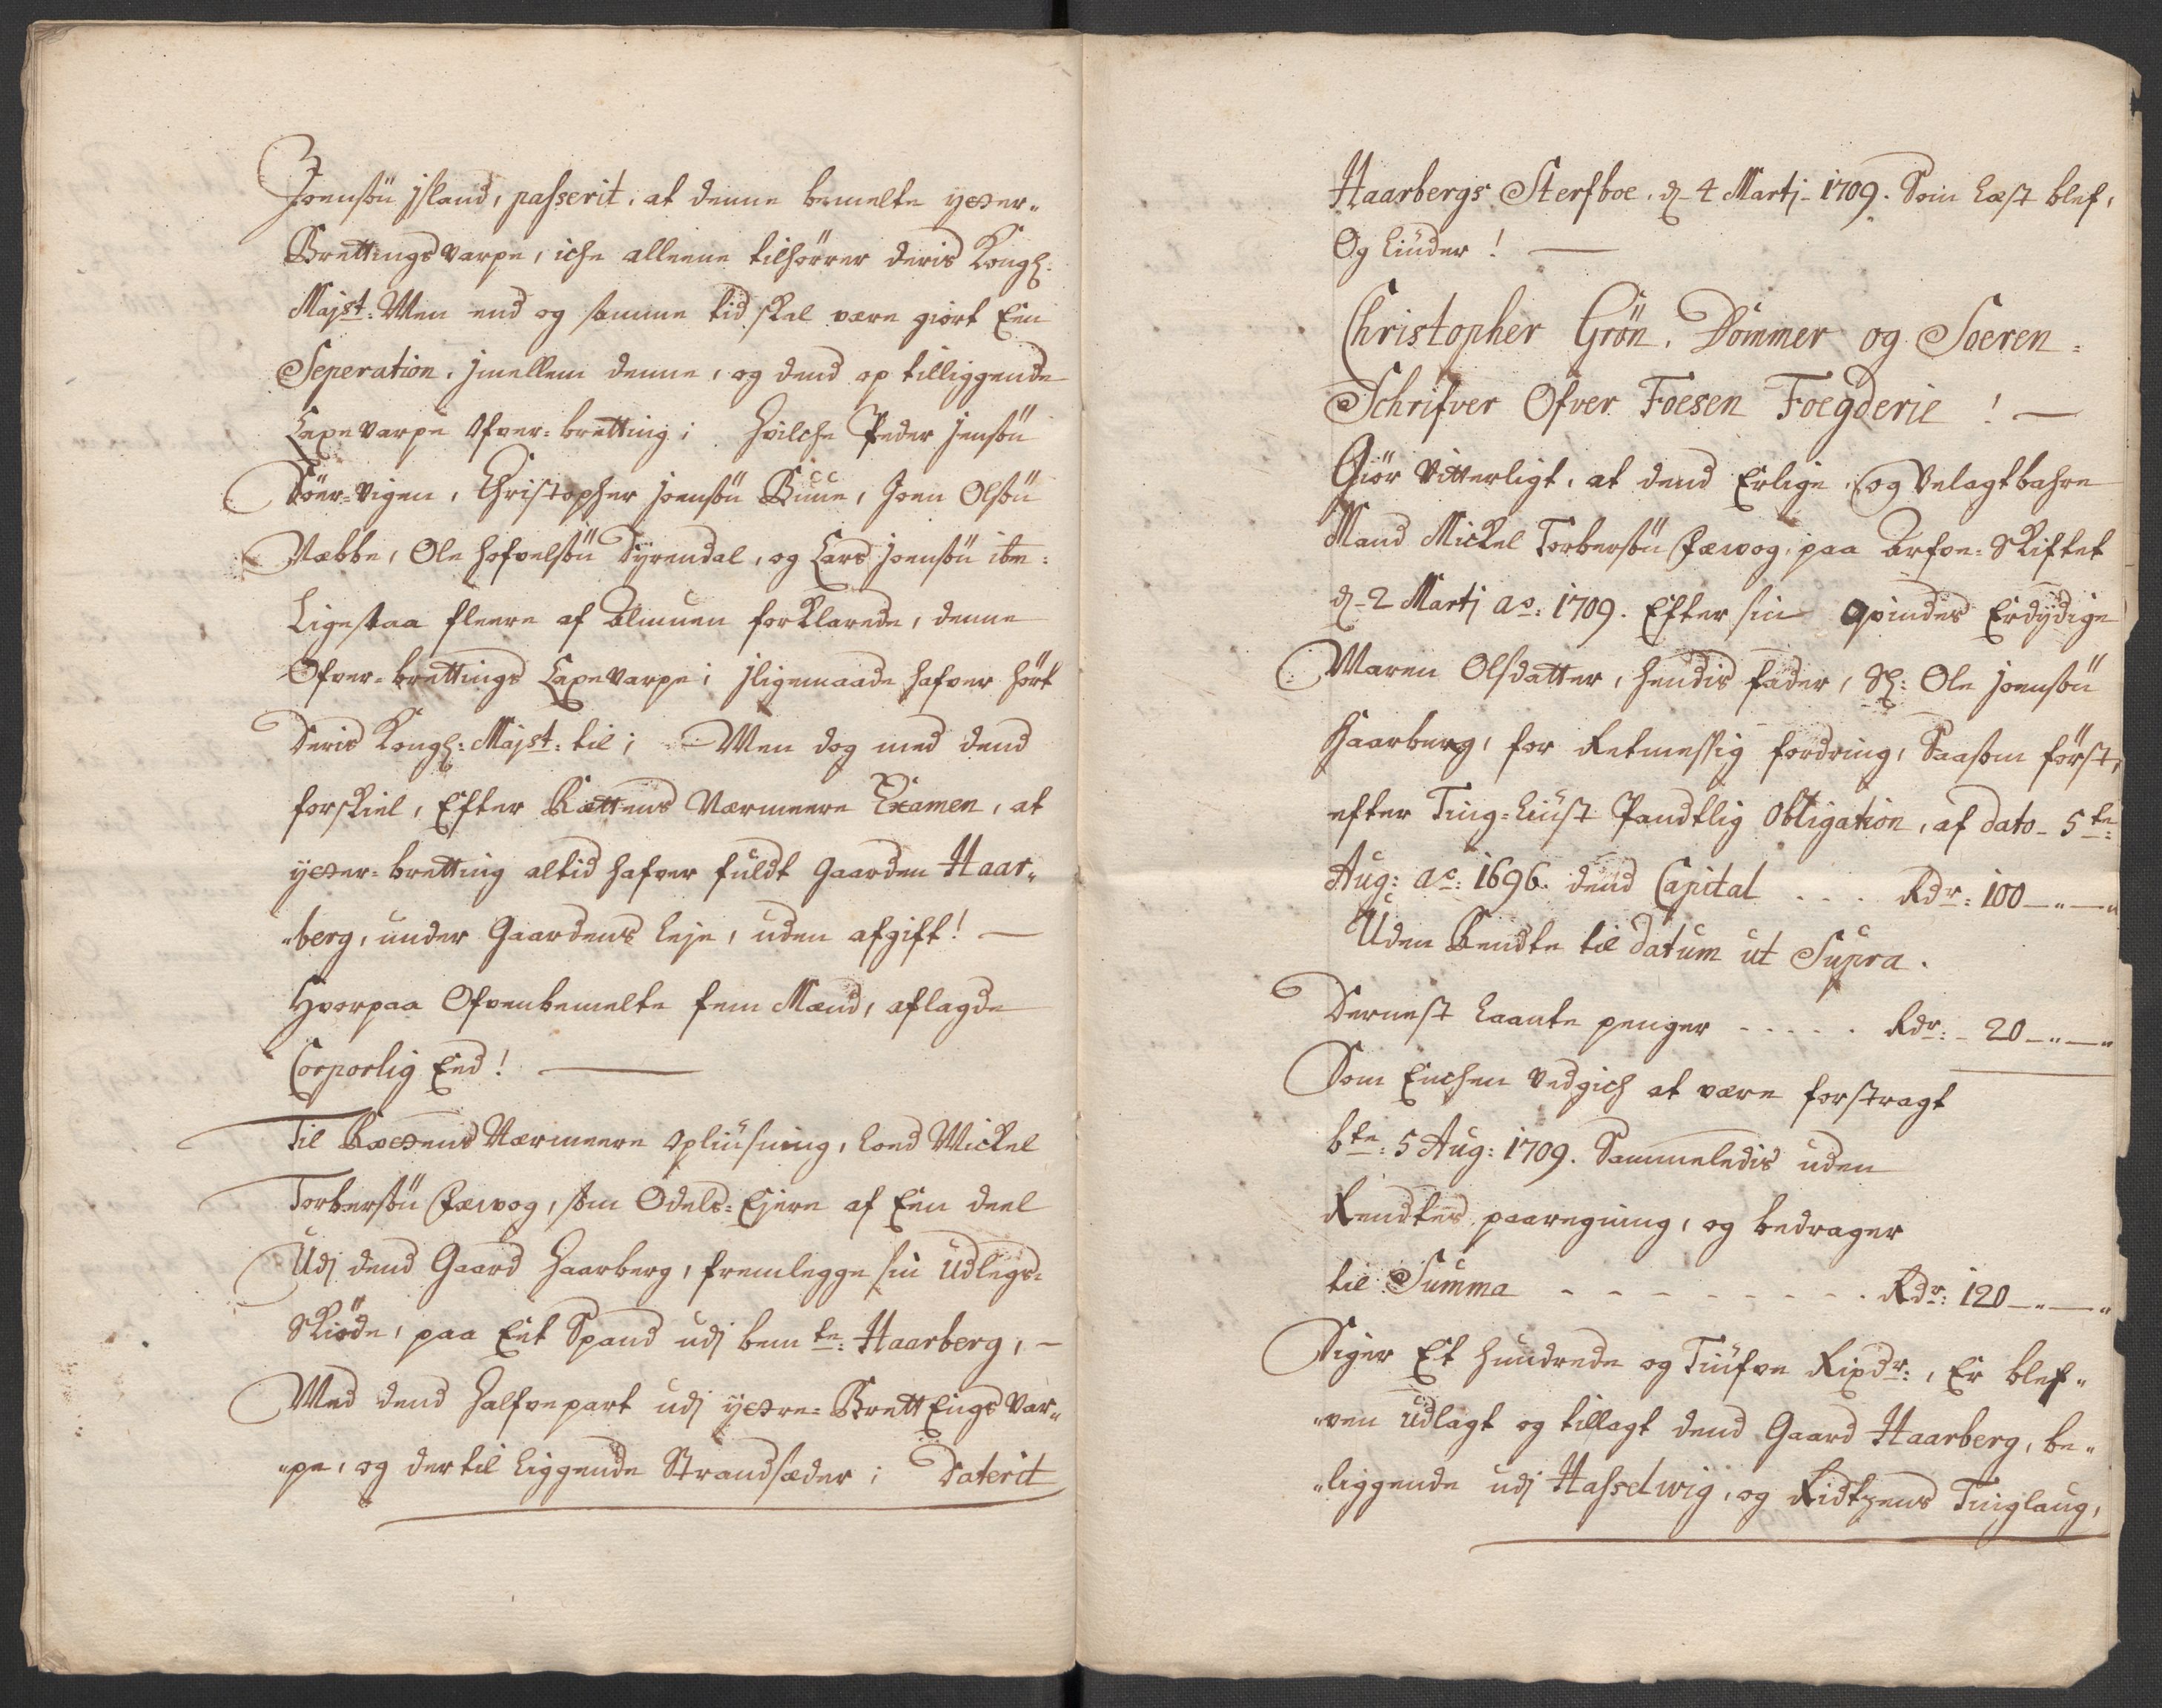 Joensøn Jsland, passerit, at denne bemelte ytter„
Brettings varpe, iche alleene tilhörrer deris Kongl:
Majst: Men end og samme tid skal være giort Een
Seperation, jmellem denne, og dend op tilliggende
Laxevarpe Ofver-bretting; Hvilche Peder Jensøn
Söer-vigen, Christopher Joensøn Buue, Joen Olsøn
Næbbe, Ole Hofvelsøn Dyrendal, og Lars Joensøn ibm:
Ligesaa fleere af Almuen forklarede, denne
Ofver-brettings Laxevarpe; jligemaade hafver hört
Deris Kongl: Majst: til; Men dog med dend
forskiel, Efter Rættens Nærmeere Examen, at
ytter-bretting altid hafver fuldt Gaarden Haar„
„berg, under Gaardens Leje, uden afgift! —
Hvorpaa Ofvenbemelte fem Mænd, aflagde
Corporlig Eed! —
Til Rættens Nærmeere Opliusning, loed Mickel
Torbersøn Fæwog, som Odels-Ejere af Een deel
Udj dend Gaard Haarberg, fremlegge sin Udlegs-
Skiöde, paa Eet Spand udj bemte: Haarberg, —
Med dend Halfvepart udj yttre-BrettEngs Var„
„pe, og dertil liggende Strandsæder; Daterit
Haarbergs Sterfboe, d. 4 Martj 1709. Som læst blef,
Og liuder! —
Christopher Grøn, Dommer og Soeren-
Schrifver Ofver Foesen Foegderie! —
Giör Vitterligt, at dend Erlige, og Velagtbahre
Mand Mickel Torbersøn Fæwog, paa Arfve-Skiftet
d. 2 Martj ao: 1709. Efter sin Qvindes Erdydige
Maren Olsdatter, hendis fader, Sl: Ole Joensøn
Haarberg, for Retmessig fordring, Saasom först,
efter Ting-liust Pandtlig Obligation, af dato 5te:
Aug: ao: 1696. dend Capital . . . Rdr: 100 —„—„
Uden Rendte til datum ut Supra.
Dernest laante penger . . . . . Rdr: 20 —„—„
Som Enchen vedgich at være forstragt
bte: 5 Aug: 1709. Sammeledis uden
Rendtes paaregning, og bedrager
til Summa . . . . . . . . . Rdr: 120 —„—„
Siger Et hundrede og Tiufve Rixdr:, Er blef„
„ven udlagt og tillagt dend Gaard Haarberg, be„
„liggende udj Hasselwig, og Tinglaug,